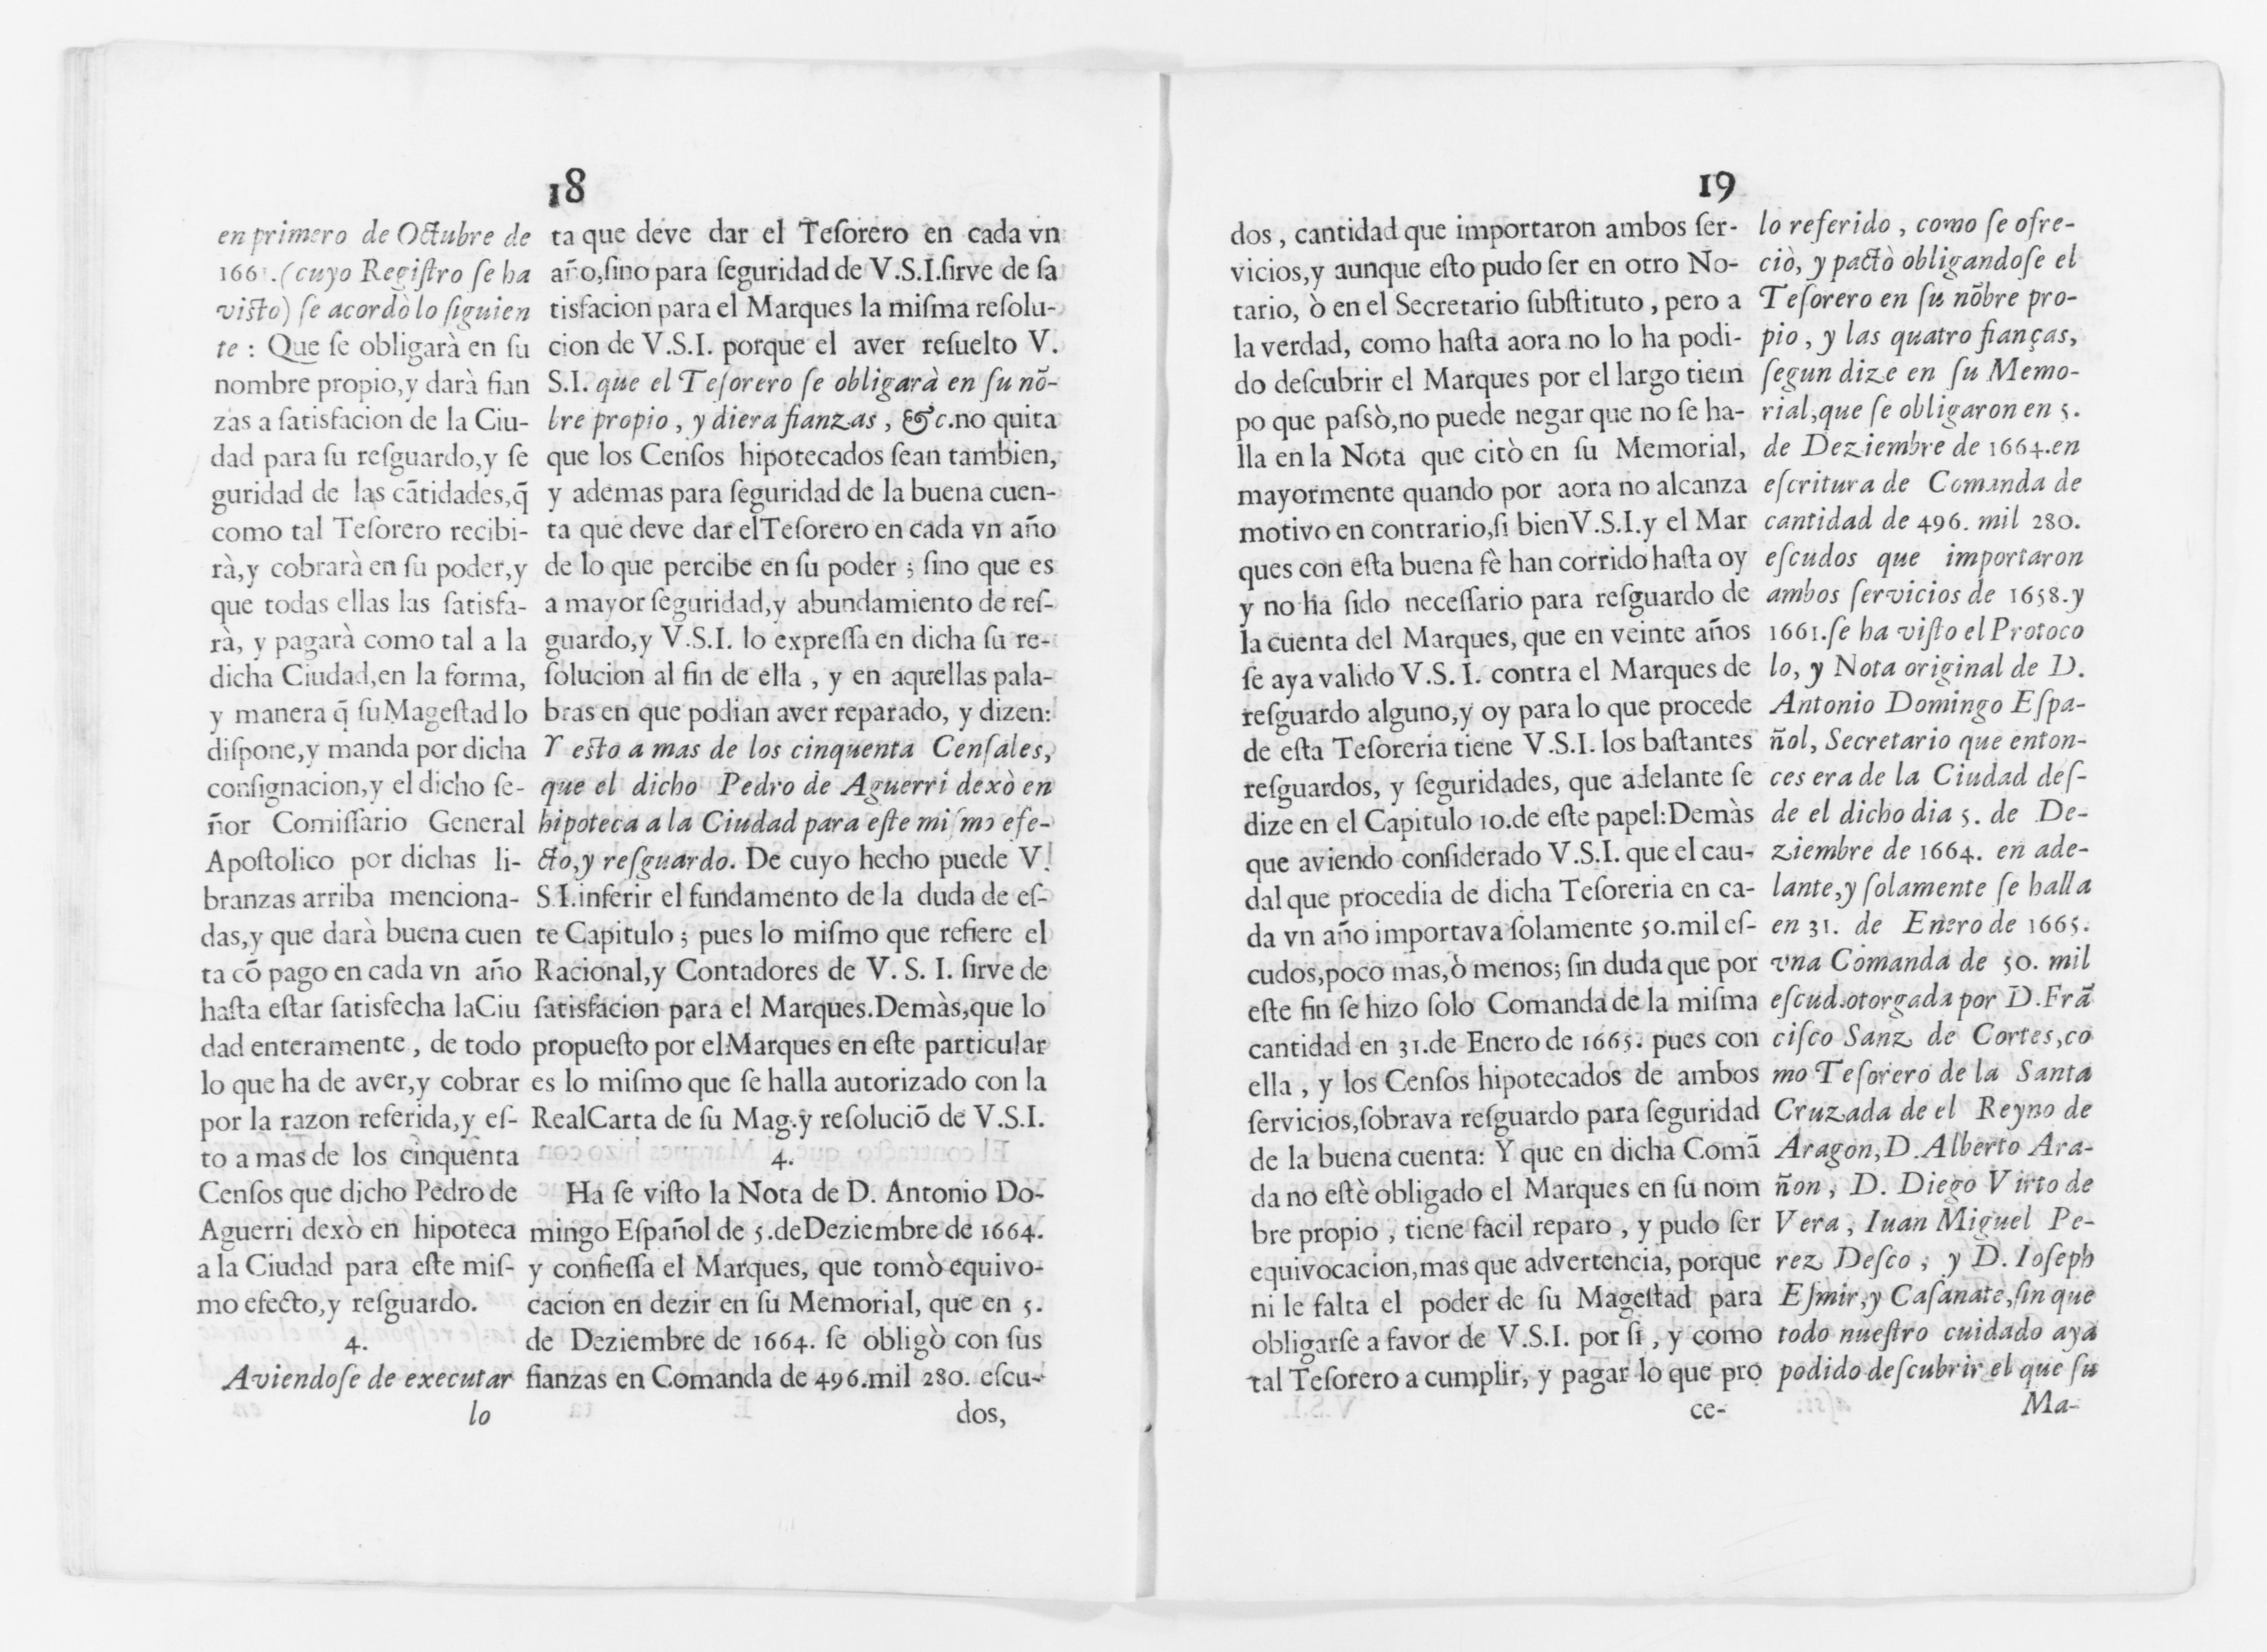 18
en primero de Octubre de
166 .(cuyo Regiſtro ſe ha
viſto) ſe acordò lo ſiguien
te : Que ſe obligarà en ſu
nombre propio,y darà fian
zas a ſatisfacion de la Ciu-
dad para ſu reſguardo,y ſe
guridad de las cãtidades,q̃
como tal Teſorero recibi-
rà,y cobrarà en ſu poder,y
que todas ellas las ſatisfa-
rà, y pagarà como tal a la
dicha Ciudad,en la forma,
y manera q̃ ſu Mageſtad lo
diſpone,y manda por dicha
conſignacion,y el dicho ſe-
ñor Comiſſario General
Apoſtolico por dichas li-
branzas arriba menciona-
das,y que darà buena cuen
ta cõ pago en cada vn año
haſta eſtar ſatisfecha laCiu
dad enteramente , de todo
lo que ha de aver,y cobrar
por la razon referida,y eſ-
to a mas de los cinquenta
Cenſos que dicho Pedro de
Aguerri dexò en hipoteca
a la Ciudad para eſte miſ-
mo efecto,y reſguardo.
4.
Aviendoſe de executar
lo
ta que deve dar el Teſorero en cada vn
año,ſino para ſeguridad de V.S.I.ſirve de ſa
tisfacion para el Marques la miſma reſolu-
cion de V.S.I. porque el aver reſuelto V.
S.I. que el Teſorero ſe obligarà en ſu nõ-
bre propio , y diera fianzas , &c.no quita
que los Cenſos hipotecados ſean tambien,
y ademas para ſeguridad de la buena cuen-
ta que deve dar elTeſorero en cada vn año
de lo que percibe en ſu poder ; ſino que es
a mayor ſeguridad,y abundamiento de reſ-
guardo,y V.S.I. lo expreſſa en dicha ſu re-
ſolucion al fin de ella , y en aquellas pala-
bras en que podian aver reparado, y dizen:
Y eſto a mas de los cinquenta Cenſales,
que el dicho Pedro de Aguerri dexò en
hipoteca a la Ciudad para eſte miſmo efe-
cto,y reſguardo. De cuyo hecho puede V.
S.I.inferir el fundamento de la duda de eſ-
te Capitulo ; pues lo miſmo que refiere el
Racional,y Contadores de V. S. I. ſirve de
ſatisfacion para el Marques.Demàs,que lo
propueſto por elMarques en eſte particular
es lo miſmo que ſe halla autorizado con la
RealCarta de ſu Mag.y reſoluciõ de V.S.I.
4.
Ha ſe viſto la Nota de D. Antonio Do-
mingo Eſpañol de 5.deDeziembre de 1664.
y confieſſa el Marques, que tomò equivo-
cacion en dezir en ſu Memorial, que en 5.
de Deziembre de 1664. ſe obligò con ſus
fianzas en Comanda de 496.mil 280. eſcu-
dos,
19
dos , cantidad que importaron ambos ſer-
vicios,y aunque eſto pudo ſer en otro No-
tario, ò en el Secretario ſubſtituto , pero a
la verdad, como haſta aora no lo ha podi-
do deſcubrir el Marques por el largo tiem
po que paſsò,no puede negar que no ſe ha-
lla en la Nota que citò en ſu Memorial,
mayormente quando por aora no alcanza
motivo en contrario,ſi bienV.S.I.y el Mar
ques con eſta buena fè han corrido haſta oy
y no ha ſido neceſſario para reſguardo de
la cuenta del Marques, que en veinte años
ſe aya valido V.S. I. contra el Marques de
reſguardo alguno,y oy para lo que procede
de eſta Teſoreria tiene V.S.I. los baſtantes
reſguardos, y ſeguridades, que adelante ſe
dize en el Capitulo 10.de eſte papel:Demàs
que aviendo conſiderado V.S.I. que el cau-
dal que procedia de dicha Teſoreria en ca-
da vn año importava ſolamente 50.mil eſ-
cudos,poco mas,ò menos; ſin duda que por
eſte fin ſe hizo ſolo Comanda de la miſma
cantidad en 31.de Enero de 1665. pues con
ella , y los Cenſos hipotecados de ambos
ſervicios,ſobrava reſguardo para ſeguridad
de la buena cuenta: Y que en dicha Comã
da no eſtè obligado el Marques en ſu nom
bre propio , tiene facil reparo , y pudo ſer
equivocacion,mas que advertencia, porque
ni le falta el poder de ſu Mageſtad para
obligarſe a favor de V.S.I. por ſi , y como
tal Teſorero a cumplir, y pagar lo que pro
ce-
lo referido , como ſe ofre-
ciò, y pactò obligandoſe el
Teſorero en ſu nõbre pro-
pio , y las quatro fianças,
ſegun dize en ſu Memo-
rial,que ſe obligaron en 5.
de Deziembre de 1664.en
eſcritura de Comanda de
cantidad de 496. mil 280.
eſcudos que importaron
ambos ſervicios de 1658.y
1661.ſe ha viſto el Protoco
lo, y Nota original de D.
Antonio Domingo Eſpa-
ñol, Secretario que enton-
ces era de la Ciudad deſ-
de el dicho dia 5. de De-
ziembre de 1664. en ade-
lante,y ſolamente ſe halla
en 31. de Enero de 1665.
vna Comanda de 50. mil
eſcud.otorgada por D.Frã
ciſco Sanz de Cortes,co
mo Teſorero de la Santa
Cruzada de el Reyno de
Aragon,D.Alberto Ara-
ñon , D. Diego Virto de
Vera , Iuan Miguel Pe-
rez Deſco ; y D. Ioſeph
Eſmir,y Caſanate,ſin que
todo nueſtro cuidado aya
podido deſcubrir el que ſu
Ma-